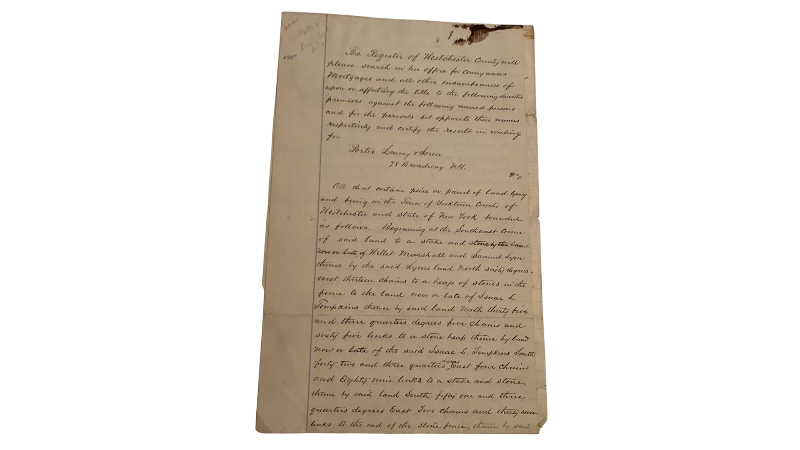 The Register of Westchester County will
please search in his office for conveyances
Mortgages and all other encumbrances of
upon or affecting the title to the following described
premises against the following named persons
and for the periods set opposite their names
respectively and certify the result in writing
for
Porter Lowry & Soren
78 Broadway N.Y.
All that certain piece or parcel of Land lying
and being in the Town of Yorktown County of
Westchester and State of New York bounded
as follows. Beginning at the Southeast Corner
of said land to a stake and stone by the land
now or late of Willet Marshall and Samuel Lyon
thence by the said Lyons land North sixty degrees
west thirteen chains to a heap of stones in the
fence to the land now or late of Isaac L.
Tompkins thence by said land North thirty five
and three quarters degrees five chains and
sixty five links to a stone heap thence by land
now or late of the said Isaac L. Tompkins South
forty two and three quarters East four chains
and Eighty nine links to a stake and stone
thence by said land South fifty one and three
quarters degrees East Two chains and thirty
links to the end of the stone fence, thence by said